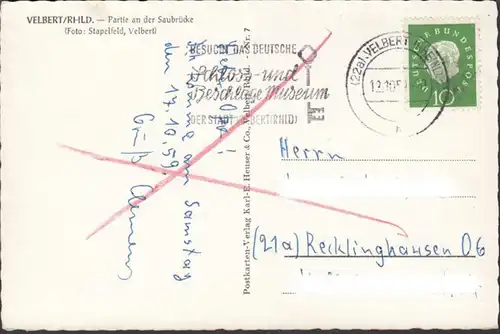 VELBERT/RHLD. — Partie an der Saubrücke
(Foto: Stapelfeld, Velbert)
BESUCHT DAS DEUTSCHE
Schloss- und
Beschläge Museum
DER STADT VELBERT (RHLD)
(22a) VELBERT (RHEINL)
DEUTSCHE BUNDESPOST
10
Lieber Opa!
Ich komme am Samstag
den 17.10.59.
Gruß
Clemens
Postkarten-Verlag Karl-E. Heuser & Co., Velbert Rhld. - Nr. 7
Herrn
(21a) Recklinghausen 06